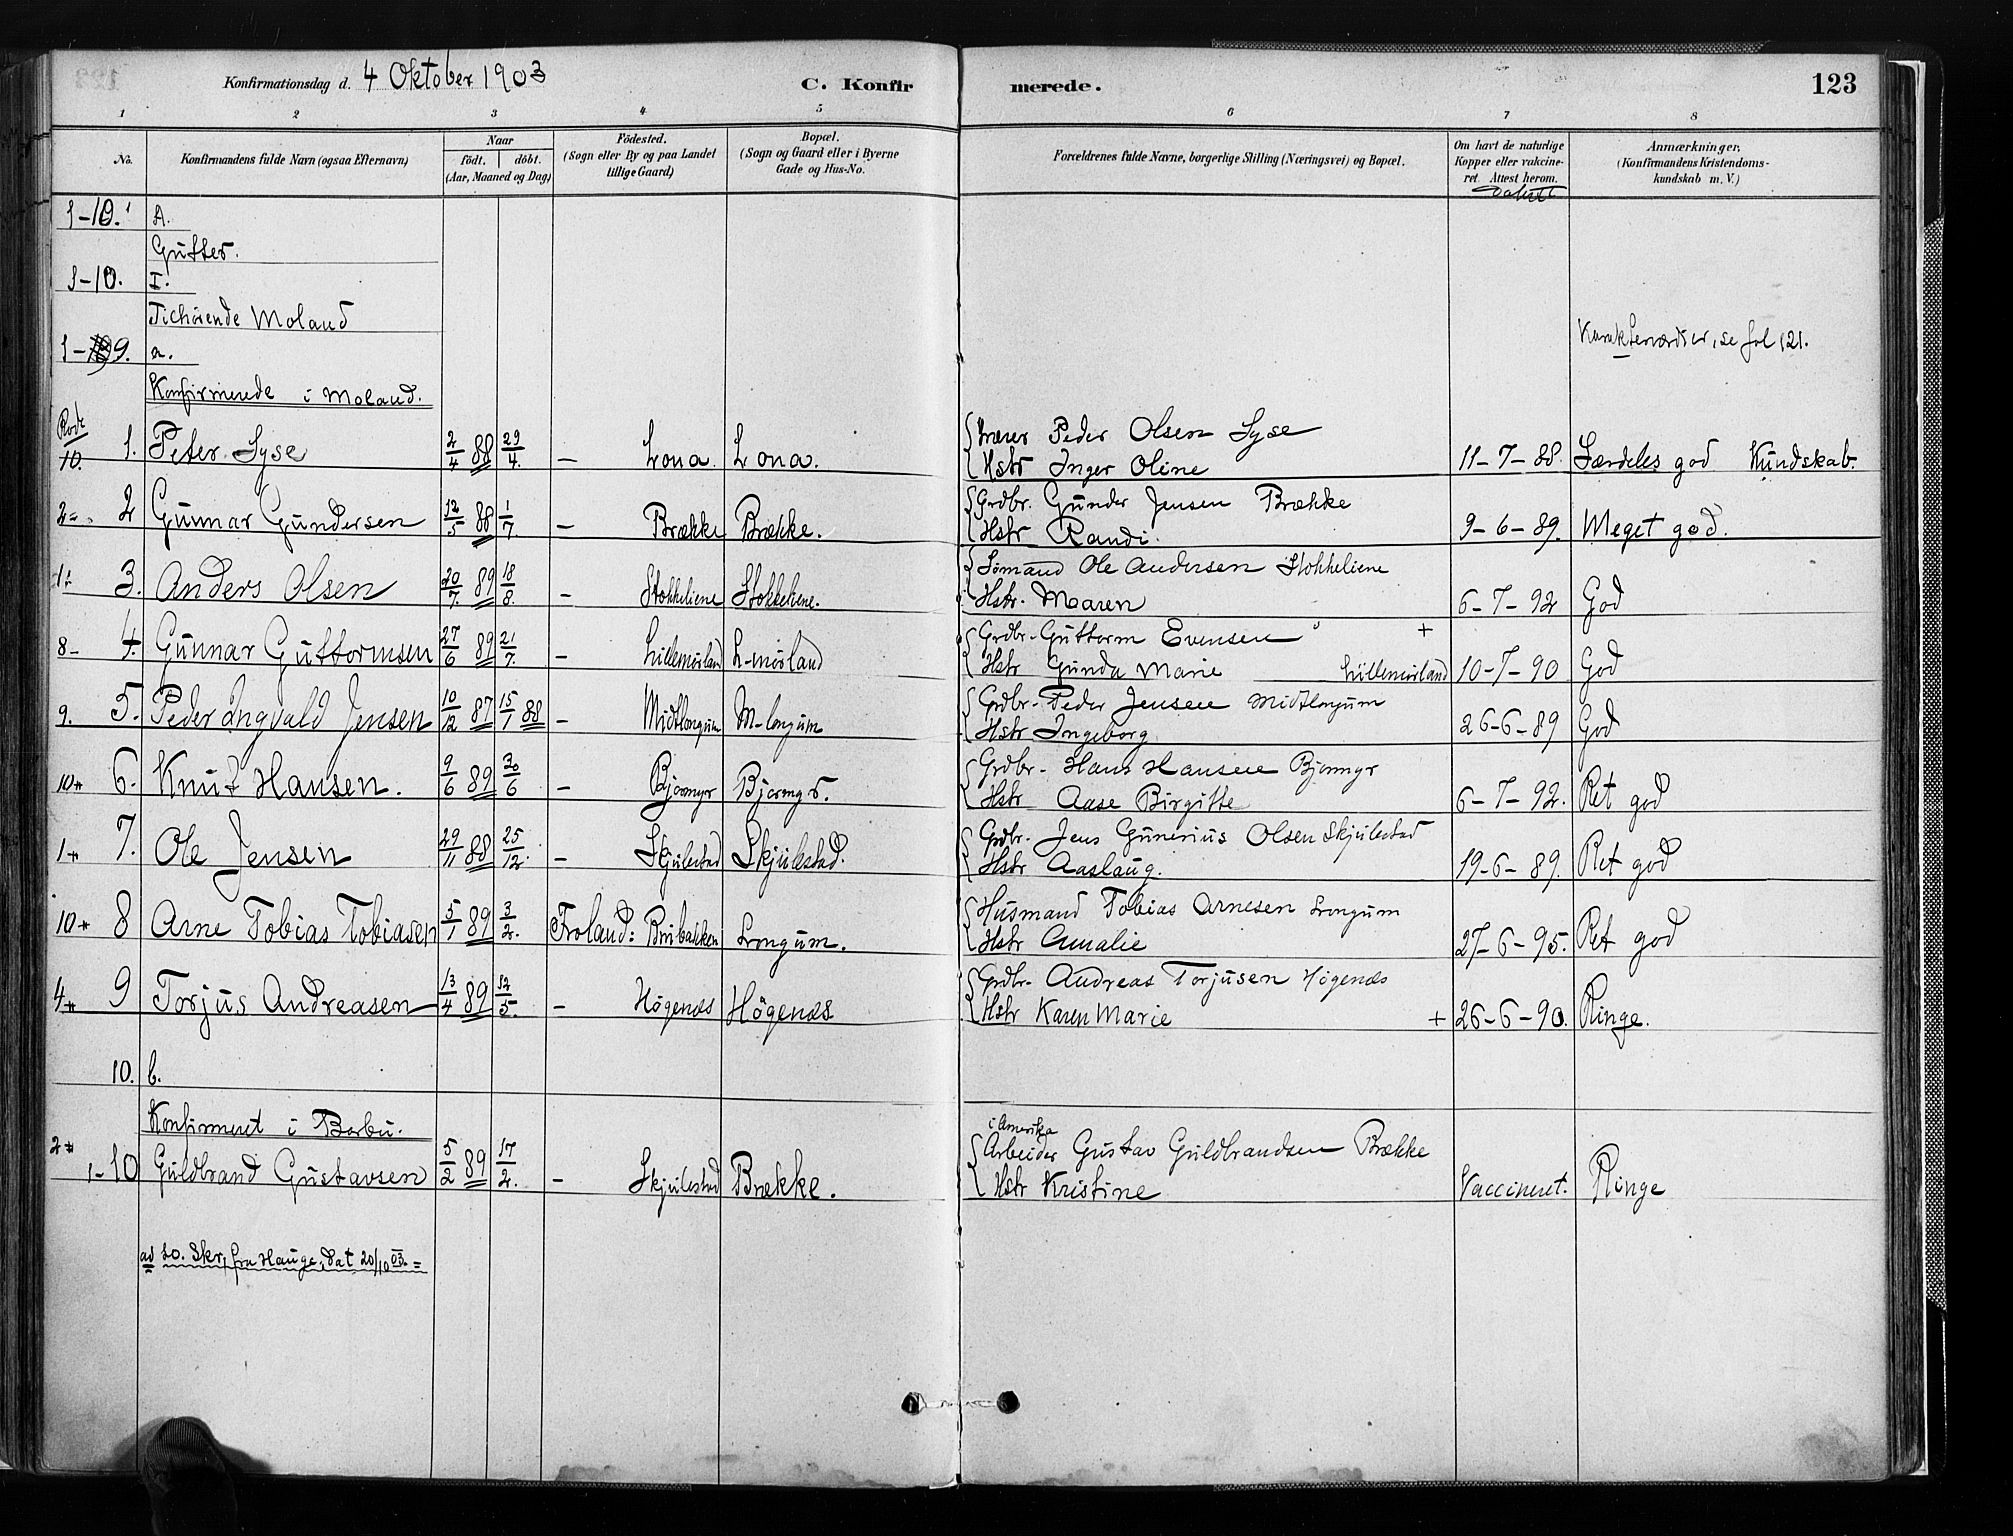 Konfirmationsdag d. 4 Oktober 1903 C. Konfirmerede. 123
1 2 3 4 5 6 7 8
No. Konfirmandens fulde Navn (ogsaa Efternavn) Naar født. døbt. (Aar, Maaned og Dag) Fødested. (Sogn eller By og paa Landet tillige Gaard) Bopæl. (Sogn og Gaard eller i Byerne Gade og Hus-No. Forældrenes fulde Navne, borgerlige Stilling (Næringsvei) og Bopæl. Om havt de naturlige Kopper eller vakcineret. Attest herom. Anmærkninger, (Konfirmandens Kristendomskundskab m. V.)
1-10. A.
Gutter.
1-10. I.
Tilhørende Moland
1-9. a. Karakterværdier, se fol 121.
Konfirmerede i Moland.
Rode
10. 1. Peter Lyse 2/4 88 29/4. – Lona. Lona. Lærer Peder Olsen Lyse
Hstr Inger Oline 11-7-88. Særdeles god Kundskab.
2 Gunnar Gundersen 12/5 88 1/7. – Brække Brække. Grdbr. Gunder Jensen Brække
Hstr Randi. 9-6-89. Meget god.
3. Anders Olsen 20/7. 89 18/8. – Stokkeliene Stokkeliene. Sømand Ole Andersen Stokkeliene
Hstr. Maren 6-7-92 God
8- 4. Gunnar Guttormsen 27/6 89 21/7. – Lillemørland L-mørland Grdbr. Guttorm Evensen +
Hstr Gunda Marie Lillemørland 10-7-90 God
9. 5. Peder Ingvald Jensen 10/12 87 15/1 88 – Midtlongum M-longum Grdbr. Peder Jensen Midtlongum
Hstr Ingeborg 26-6-89 God
10 6. Knut Hansen. 9/6 89 30/6 – Bjormyr Bjormyr. Grdbr. Hans Hansen Bjormyr
Hstr Aase Birgitte 6-7-92. Ret god
1 7. Ole Jensen 29/11 88 25/12. – Skjulestad Skjulestad. Grdbr. Jens Gunerius Olsen Skjulestad
Hstr Aaslaug. 19-6-89. Ret god
10 8 Arne Tobias Tobiasen 5/1 89 3/2. Froland: Brubakken Longum. Husmand Tobias Arnesen Longum
Hstr Amalie 27-6-95. Ret god
4 9 Torjus Andreasen 13/4 89 12/5. – Høgenæs Høgenæs Grdbr. Andreas Torjusen Høgenæs
Hstr Karen Marie + 26-6-90. Ringe.
10. b.
Konfirmeret i Barbu.
2 1-10 Guldbrand Gustavsen 5/2 89 17/2. – Skjulestad Brække. i Amerika
Arbeider Gustav Guldbrandsen Brække
Hstr Kristine Vaccineret. Ringe
ad 10. Skr. fra Hauge, dat 20/10 03.